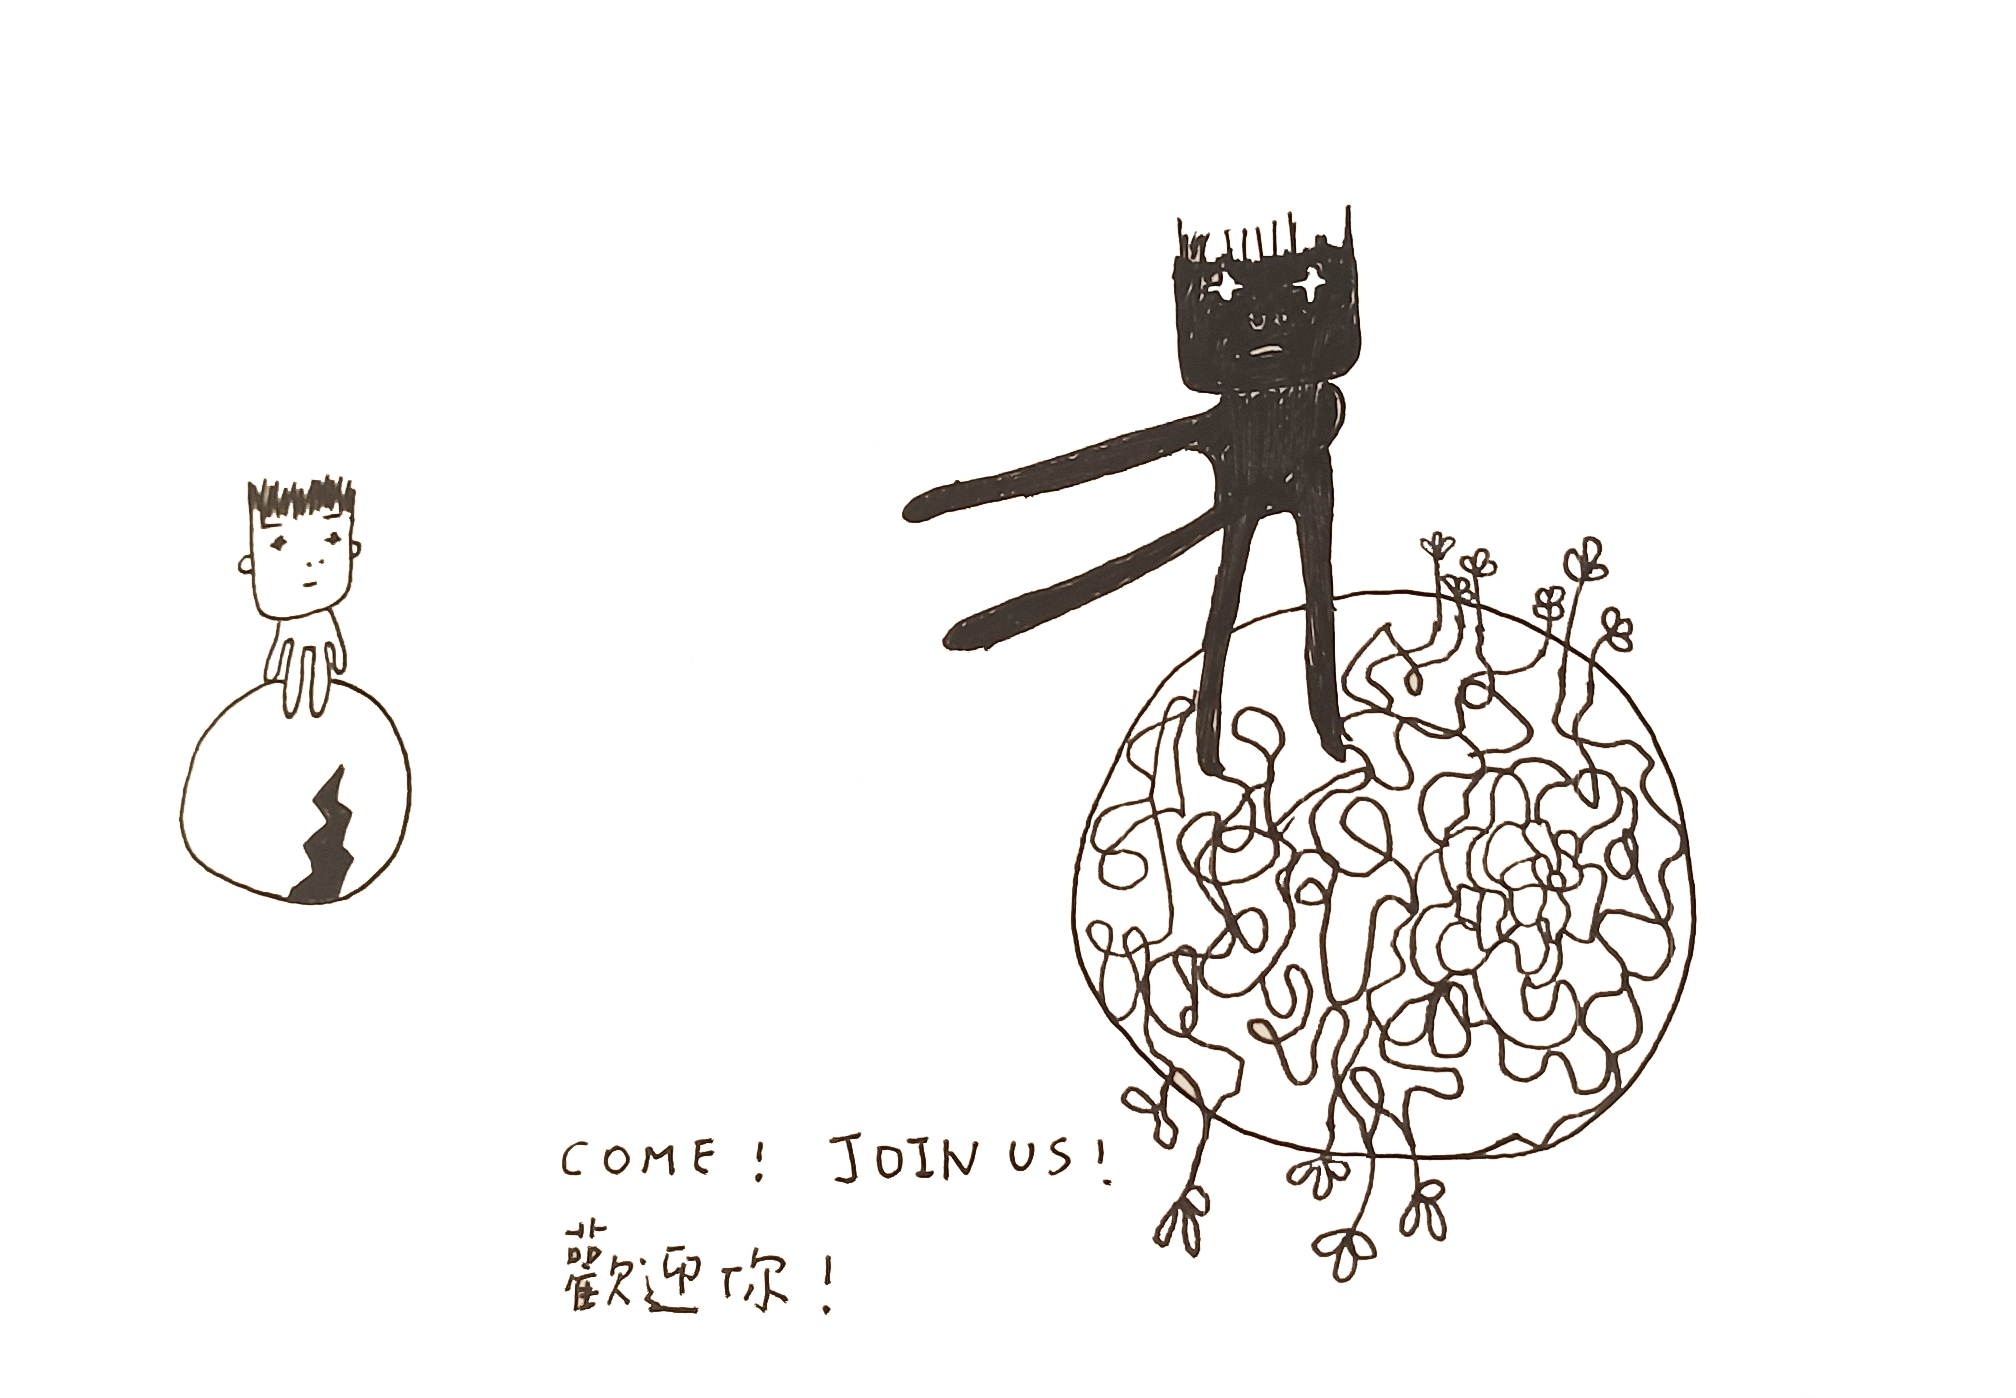 COME! JOIN US!
歡迎你!